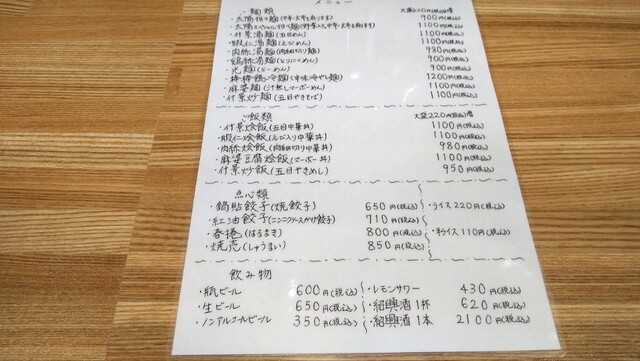 メニュー
麺類 大盛220円(税込)増
・太陽担々麺(辛さ・大辛も有ります) 900円(税込)
・太陽スペシャル担々麺(野菜入り、中辛・大辛も有ります) 1100円(税込)
・什景湯麺(五目めん) 1100円(税込)
・蝦仁湯麺(えびめん) 1100円(税込)
・肉絲湯麺(肉細切り麺) 980円(税込)
・鶏絲湯麺(とりにくめん) 900円(税込)
・光麺(らーめん) 900円(税込)
・棒棒鶏冷麺(辛味冷やし麺) 1200円(税込)
・麻婆麺(汁無しマーボーめん) 1100円(税込)
・什景炒麺(五目やきそば) 1100円(税込)
ご飯類 大盛220円(税込)増
・什景烩飯(五目中華丼) 1100円(税込)
・蝦仁烩飯(えび入り中華丼) 1100円(税込)
・肉絲烩飯(肉細切り中華丼) 980円(税込)
・麻婆豆腐烩飯(マーボー丼) 1100円(税込)
・什景炒飯(五目やきめし) 950円(税込)
点心類
・鍋貼餃子(焼餃子) 650円(税込) ・ライス220円(税込)
・紅油餃子(ニンニクソースかけ餃子) 710円(税込)
・春捲(はるまき) 800円(税込) ・半ライス110円(税込)
・焼売(しゅうまい) 850円(税込)
飲み物
・瓶ビール 600円(税込) ・レモンサワー 430円(税込)
・生ビール 650円(税込) ・紹興酒1杯 620円(税込)
・ノンアルコールビール 350円(税込) ・紹興酒1本 2100円(税込)